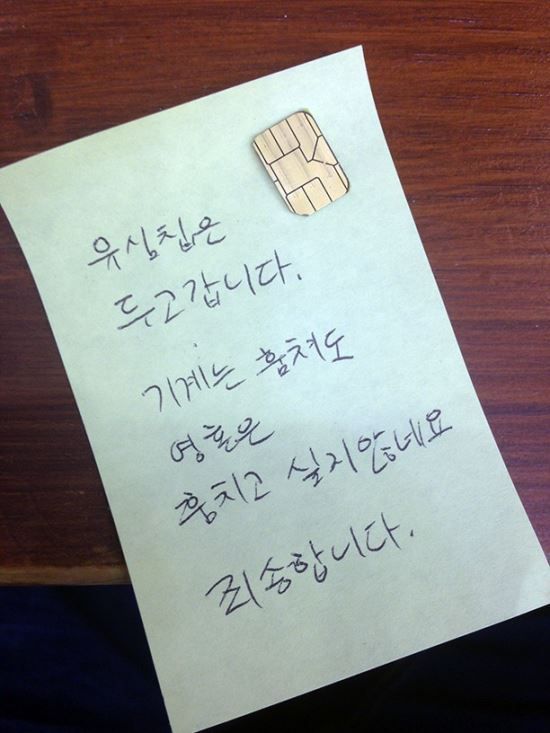 유심칩은
두고갑니다.
기계는 훔쳐도
영혼은
훔치고 싶지않네요
죄송합니다.